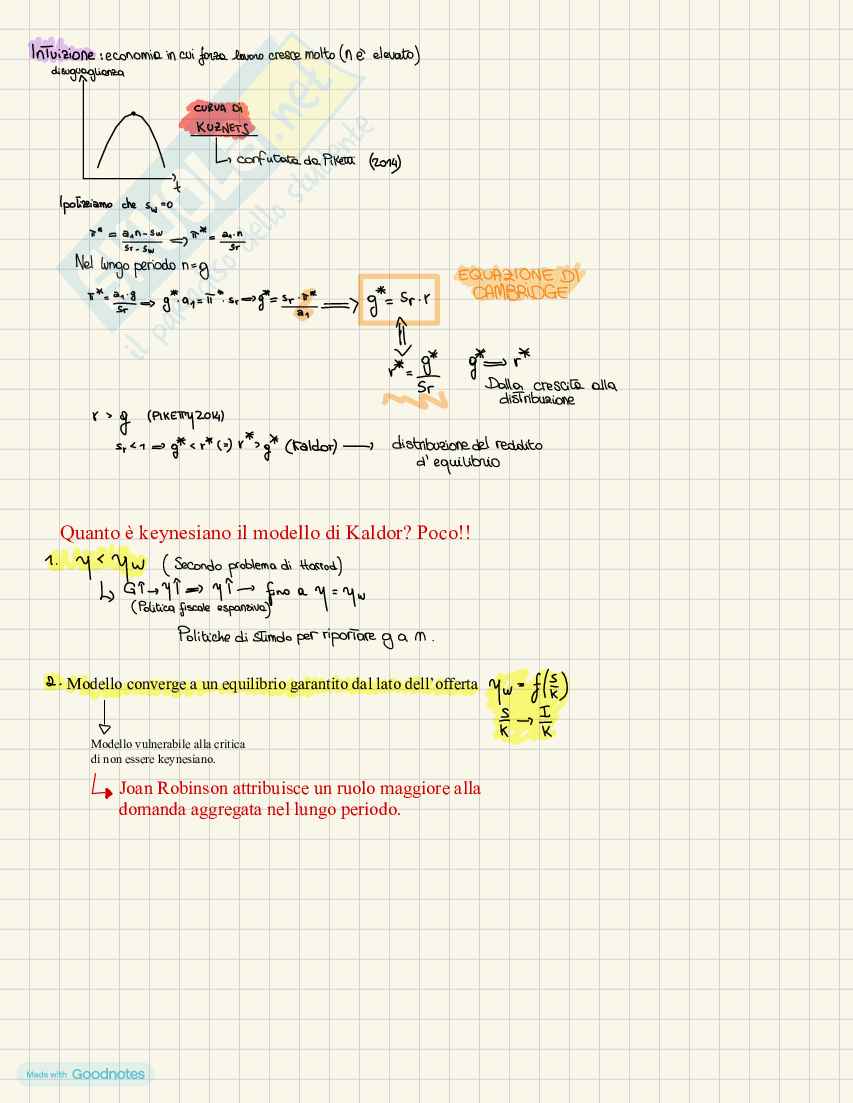 Intuizione : economia in cui forza lavoro cresce molto (n è elevato)
disuguaglianza
CURVA DI
KUZNETS
confutata da Piketti (2014)
t
Ipotizziamo che s_w=0
π* = a₁n - s_w / s_r - s_w ⟹ π* = a₁·n / s_r
Nel lungo periodo n=g
π* = a₁·g / s_r ⟹ g*·a₁ = π*·s_r ⟹ g* = s_r·π* / a₁ ⟹ g* = s_r·r
EQUAZIONE DI
CAMBRIDGE
r* = g* / s_r
g* ⟹ r*
Dalla crescita alla
distribuzione
r > g (PIKETTY 2014)
s_r < 1 ⟹ g* < r* (=) r* > g* (Kaldor) ⟶ distribuzione del reddito
d'equilibrio
Quanto è keynesiano il modello di Kaldor? Poco!!
1. y < y_w (Secondo problema di Harrod)
G↑ → Y↑ ⟹ y↑ → fino a y = y_w
(Politica fiscale espansiva)
Politiche di stimolo per riportare g a n.
2. Modello converge a un equilibrio garantito dal lato dell'offerta y_w = f(S/K)
S/K → I/K
Modello vulnerabile alla critica
di non essere keynesiano.
Joan Robinson attribuisce un ruolo maggiore alla
domanda aggregata nel lungo periodo.
.net
il paradiso dello studente
Made with Goodnotes